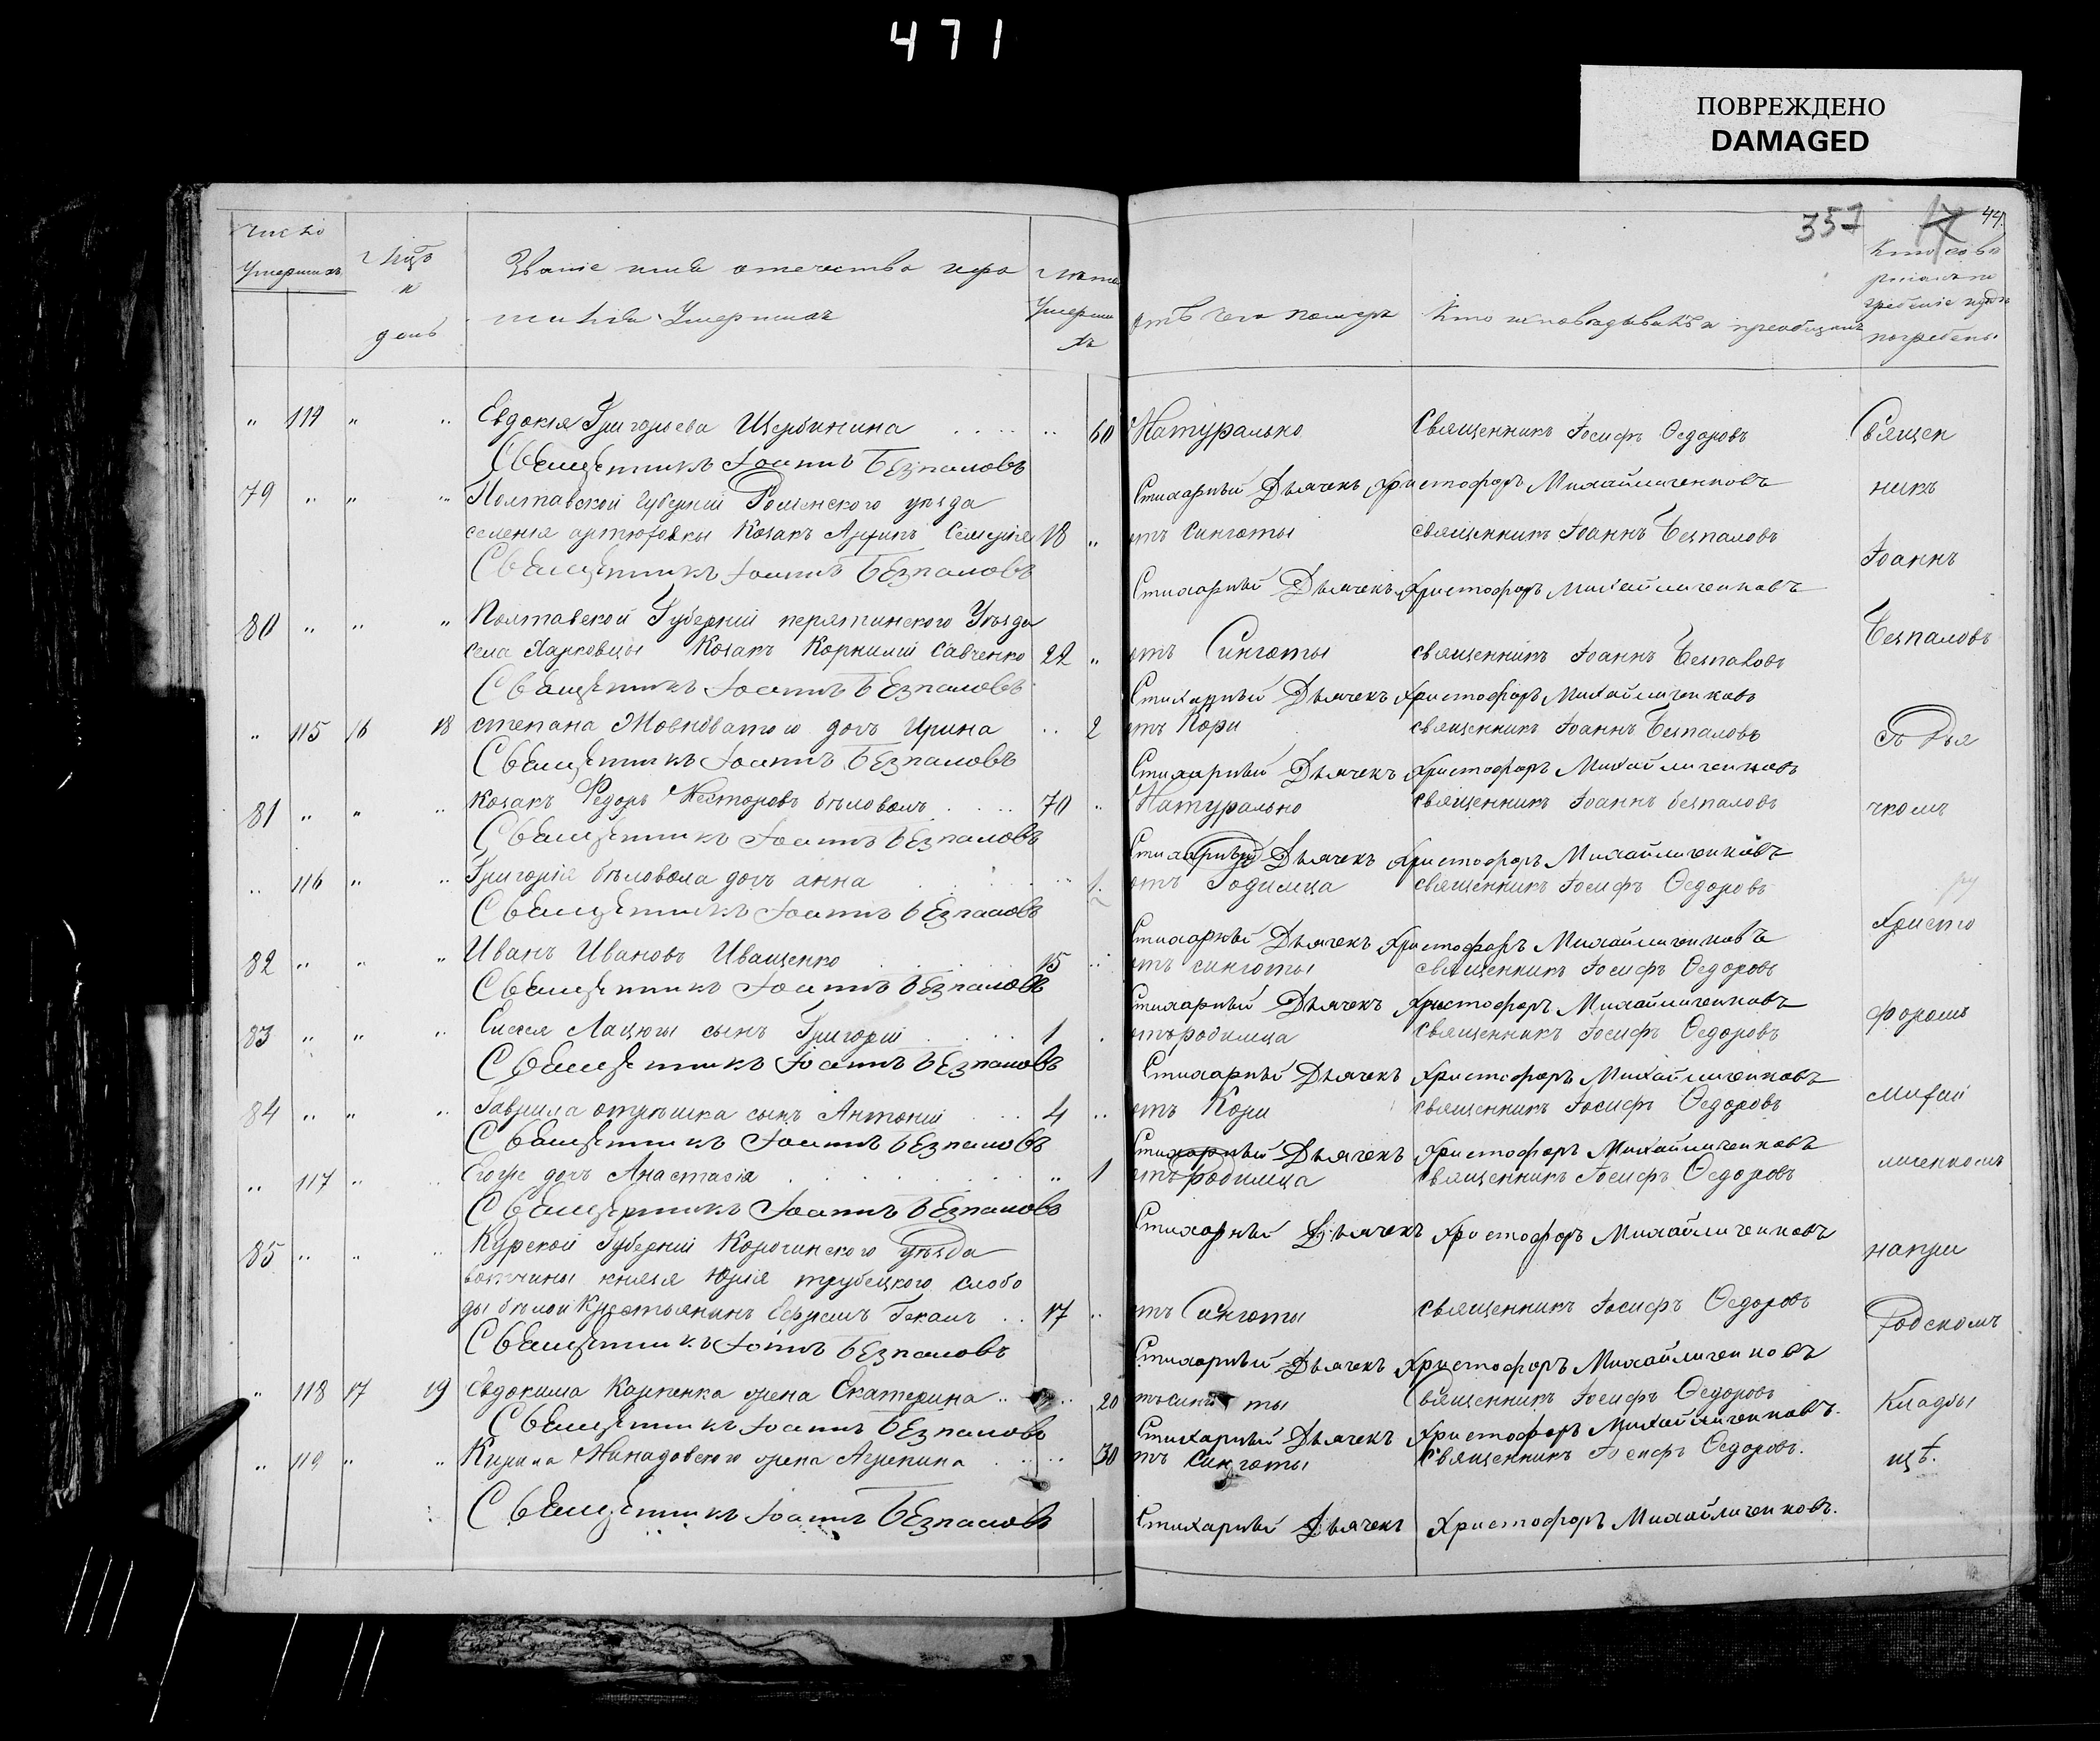 471
ПОВРЕЖДЕНО
DAMAGED
357 17 44
Число Умершихъ
Мѣцъ и день
Званіе имя отечество и фа
милія Умершихъ
Лѣта Умерши хъ
Отъ чего померъ
Кто исповѣдывалъ и преобщалъ
погребены
" 114 " " Евдокія Григорьева Щербинина 60 Натурально Священникъ Іосифъ Ѳедоровъ Священ
Священникъ Іоаннъ Безпаловъ
Стихарный Дьячекъ Христофоръ Михайличенковъ
79 " " " Полтавской Губерніи Роменского уѣзда никъ
селенія артюховки Козакъ 18 " отъ Синготы священникъ Іоаннъ Безпаловъ
Священникъ Іоаннъ Безпаловъ Іоаннъ
Стихарный Дьячекъ Христофоръ Михайличенковъ
80 " " " Полтавской Губерніи перятинского Уѣзда
села Харковцы Козакъ Корнилій Савченко 22 " отъ Синготы священникъ Іоаннъ Безпаловъ Безпаловъ
Священникъ Іоаннъ Безпаловъ
Стихарный Дьячекъ Христофоръ Михайличенковъ
" 115 16 18 степана Жовноватого дочь Ирина " 2 отъ Кори священникъ Іоаннъ Безпаловъ Съ Дья
Священникъ Іоаннъ Безпаловъ
Стихарный Дьячекъ Христофоръ Михайличенковъ
81 " " " Козакъ Федоръ Нестеровъ бѣловолъ 70 " Натурально священникъ Іоаннъ безпаловъ чкомъ
Священникъ Іоаннъ Безпаловъ
Стихарный Дьячекъ Христофоръ Михайличенковъ
" 116 " " Григорія бѣловола дочь анна " 1 отъ Родимца священникъ Іосифъ Ѳедоровъ
Священникъ Іоаннъ Безпаловъ Христо
Стихарный Дьячекъ Христофоръ Михайличенковъ
82 " " " Иванъ Ивановъ Иващенко 15 " отъ синготы священникъ Іосифъ Ѳедоровъ
Священникъ Іоаннъ Безпаловъ
Стихарный Дьячекъ Христофоръ Михайличенковъ форомъ
83 " " " Елисея Лацюги сынъ Григорій 1 " отъ родимца священникъ Іосифъ Ѳедоровъ
Священникъ Іоаннъ Безпаловъ
Стихарный Дьячекъ Христофоръ Михайличенковъ Михай
84 " " " Гаврила отрѣшка сынъ Антоній 4 " отъ Кори священникъ Іосифъ Ѳедоровъ
Священникъ Іоаннъ Безпаловъ
Стихарный Дьячекъ Христофоръ Михайличенковъ личенкомъ
" 117 " " Егоже дочь Анастасія " 1 отъ родимца священникъ Іосифъ Ѳедоровъ
Священникъ Іоаннъ Безпаловъ
Стихарный Дьячекъ Христофоръ Михайличенковъ
85 " " " Курской Губерніи Корочинского уѣзда напри
вотчины князя Юрія трубецкого слобо
ды бѣлой Крестьянинъ Ефремъ 17 " отъ Синготы священникъ Іосифъ Ѳедоровъ Родскомъ
Священникъ Іоаннъ Безпаловъ
Стихарный Дьячекъ Христофоръ Михайличенковъ
" 118 17 19 Евдокима Карпенка жена Екатерина " 20 священникъ Іосифъ Ѳедоровъ Кладбы
Священникъ Іоаннъ Безпаловъ
Стихарный Дьячекъ Христофоръ Михайличенковъ.
" 119 " " Кирила жена Агрепина " 30 отъ Синготы священникъ Іосифъ Ѳедоровъ. щѣ.
Священникъ Іоаннъ Безпаловъ
Стихарный Дьячекъ Христофоръ Михайличенковъ.